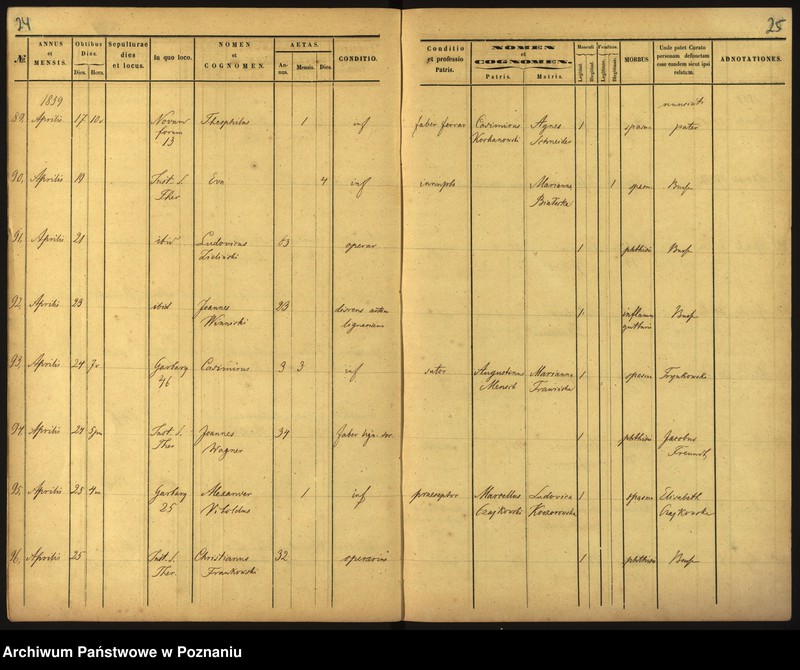 24
25
№
ANNUS
et
MENSIS.
Obitus
Dies.
Dies. Hora.
Sepulturae
dies
et locus.
In quo loco.
NOMEN
et
COGNOMEN.
AETAS.
An-
nus. Mensis. Dies.
CONDITIO.
Conditio
et professio
Patris.
NOMEN
et
COGNOMEN.
Patris. Matris.
Masculi Feminae.
Legitimi. Illegitimi. Legitimae. Illegitimae.
MORBUS
Unde patet Curato
personam defunctam
esse eandem sicut ipsi
relatum.
ADNOTATIONES.
1859
89. Aprilis 17 Novum Theophilus 1 inf faber ferrar Casimirus Agnes 1 spasm pater
forum Schneider
13
90. Aprilis 19 Inst. S. Eva 4 inf Marianna 1 spasm
Ther
91. Aprilis 21 ibid Ludovicus 63 operar 1 phthisis
Zielinski
92. Aprilis 23 ibid Joannes 23 1 inflamm
gutturis
93. Aprilis 24 Garbary Casimirus 3 3 inf sutor Augustinus Marianna 1 spasm
46 Mensch
94. Aprilis 24 Inst. S. Joannes 34 faber 1 phthisis Jacobus
Ther Wagner
95. Aprilis 25 Garbary 1 inf praeceptor Marcellus Ludovica 1 spasm Elisabeth
25 Vitoldus Czajkowski Czajkowska
96. Aprilis 25 Inst. S. Christianus 32 operarius 1 phthisis
Ther Frankowski
Archiwum Państwowe w Poznaniu